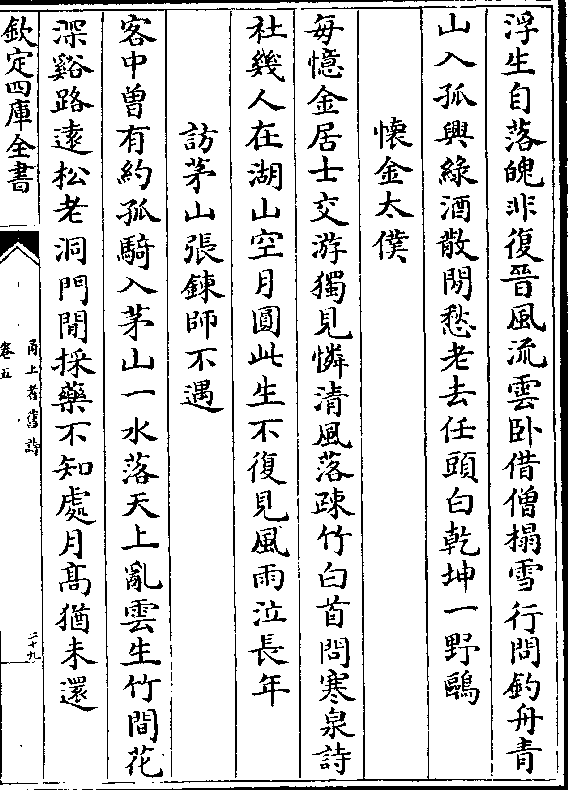 浮生自落魄非復晉風流雲卧借僧榻雪行問釣舟青
山入孤興綠酒散閒愁老去任頭白乾坤一野鷗
懐金太僕
每憶金居士交游獨見憐清風落疎竹白首問寒泉詩
社幾人在湖山空月圓此生不復見風雨泣長年
訪茅山張鍊師不遇
客中曽有約孤騎入茅山一水落天上亂雲生竹間花
深谿路逺松老洞門閒採藥不知處月髙猶未還
欽定四庫全書
甬上耆舊詩
卷五
二十九